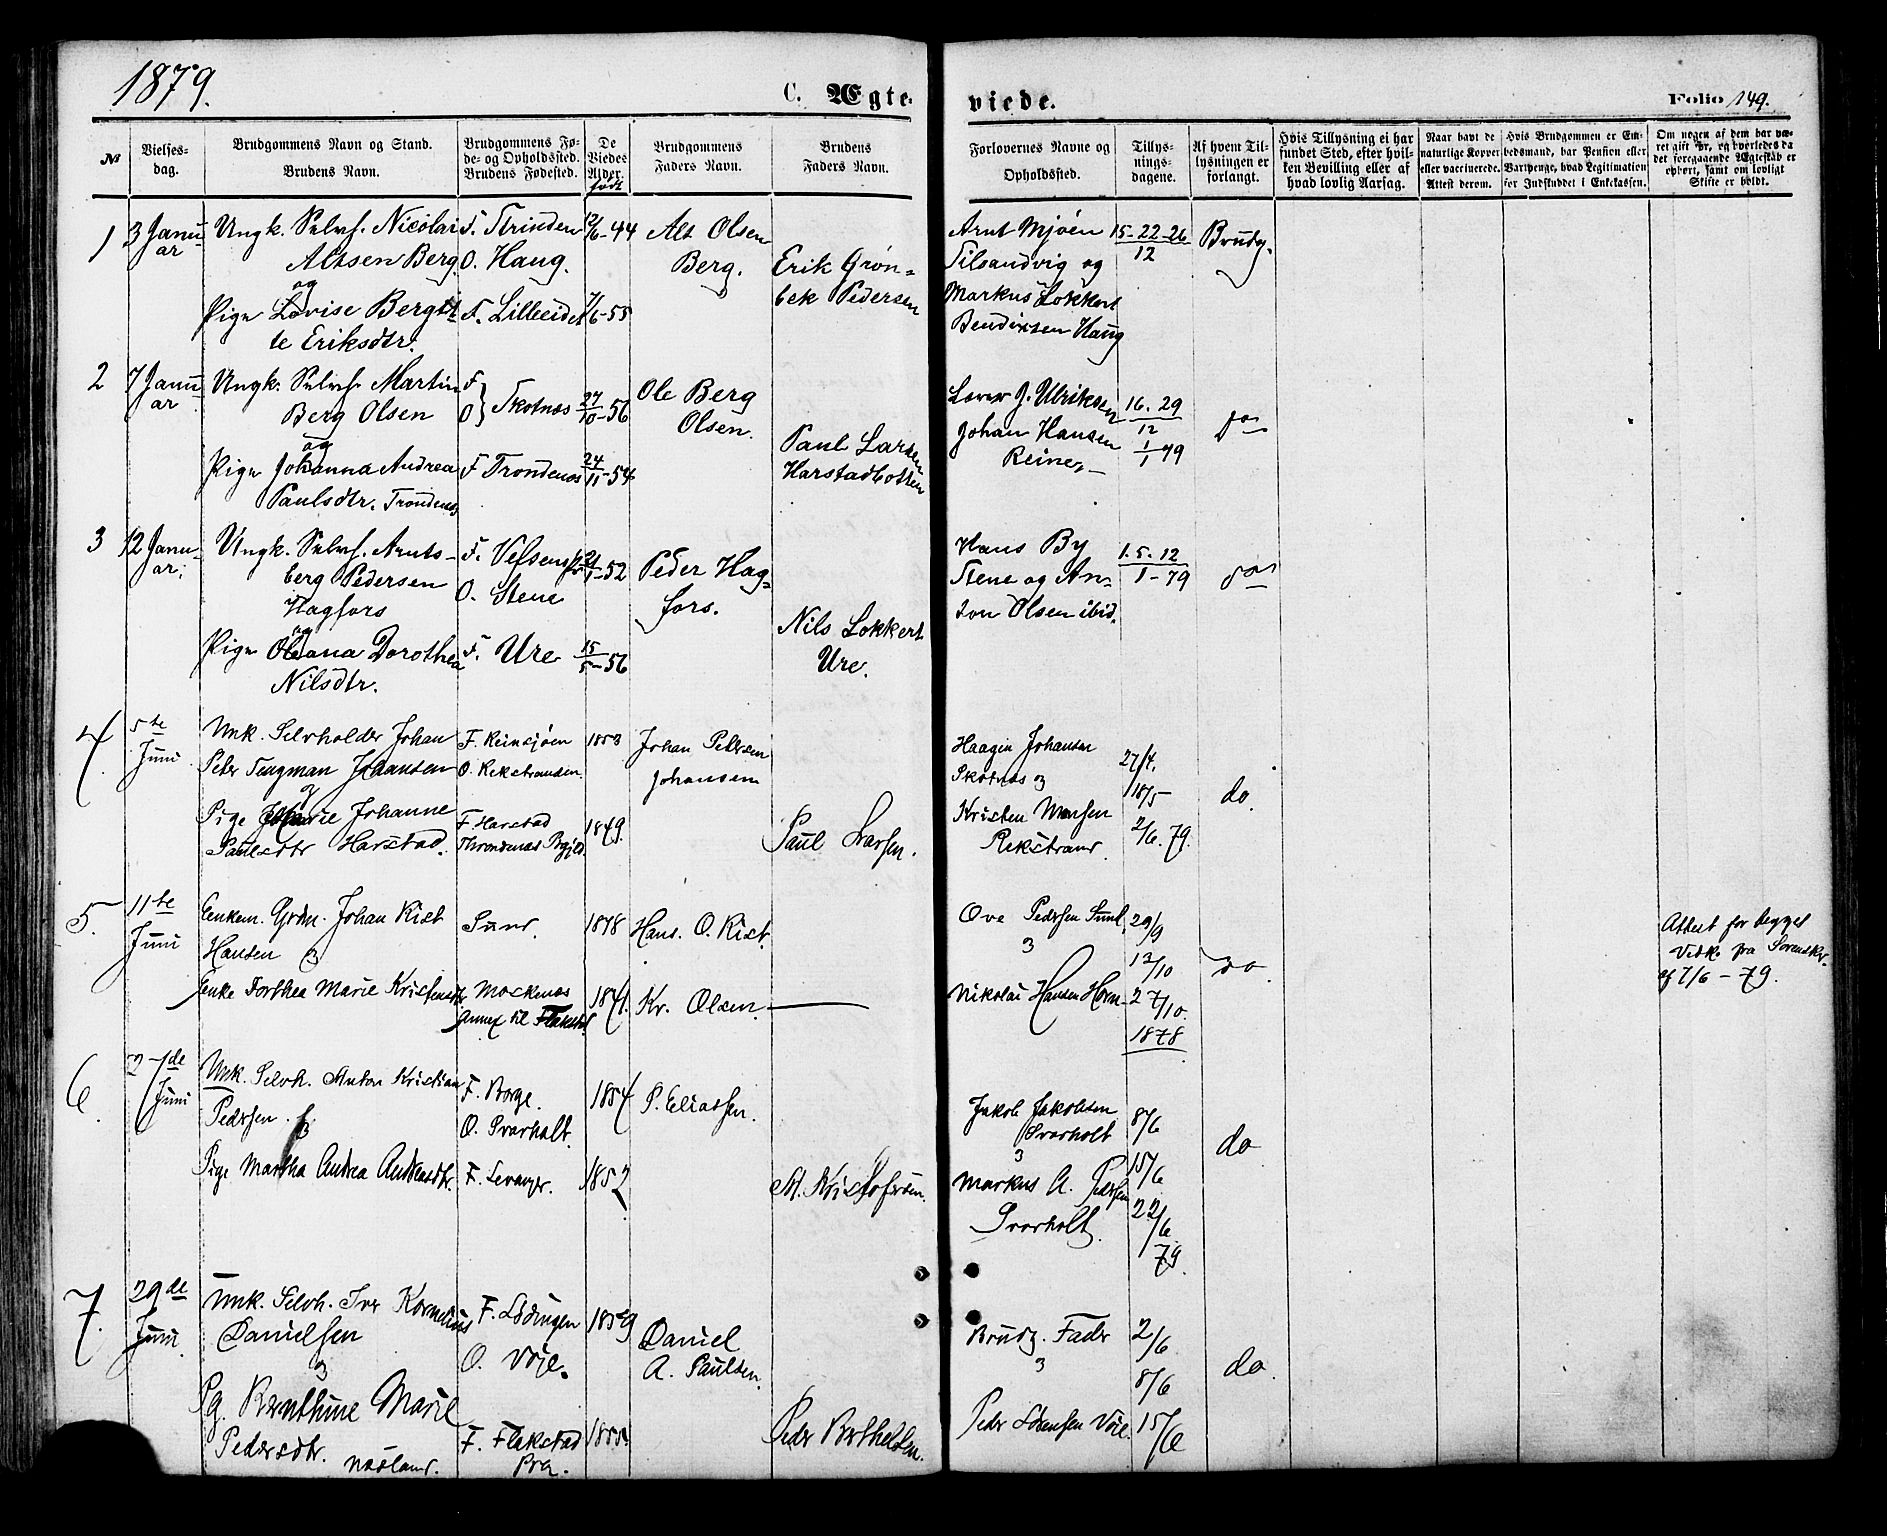 1879.
C. Ægte-
viede.
Folio 149.
№
Vielses-
dag.
Brudgommens Navn og Stand.
Brudens Navn.
Brudgommens Fø-
de- og Opholdssted.
Brudens Fødested.
De
Viedes
Alder.
født
Brudgommens
Faders Navn.
Brudens
Faders Navn.
Forlovernes Navne og
Opholdssted.
Tillys-
nings-
dagene.
Af hvem Til-
lysningen er
forlangt.
Hvis Tillysning ei har
fundet Sted, efter hvil-
ken Bevilling eller af
hvad lovlig Aarsag.
Naar havt de
naturlige Kopper
eller vaccinerede.
Attest derom.
Hvis Brudgommen er Em-
bedsmand, har Pension eller
Vartpenge, hvad Legitimation
for Indskuddet i Enkekassen.
Om nogen af dem har væ-
ret gift før, og hvorledes da
det foregaaende Ægteskab er
ophørt, samt om lovligt
Skifte er holdt.
1
3 Janu-
ar
Ungk. Selvf. Nicolai
Altsen Berg
og
Pige Lovise Bergit-
te Eriksdtr.
F. Strinden
O. Haug.
F. Lilleeidet
12/6-44
7/6-55
Alt Olsen
Berg.
Erik Grøn-
bek Pedersen
Arnt Mjøen
Tilsandvig og
Markus Lokkert
Bendixsen Haug
15-22-26
12
Brudg.
2
7 Janu
ar
Ungk. Selvf. Martin
Berg Olsen
og
Pige Johanna Andrea
Paulsdtr. Trondenæs
F
O } Skotnæs
F Trondenæs
27/10-56
24/11-54
Ole Berg
Olsen.
Paul Larsen
Harstadbotten
Lærer J. Ulriksen
Johan Hansen
Reine,-
16. 29
12
1/1 79
do
3
12 Janu-
ar.
Ungk. Selvf. Arnts-
berg Pedersen
Hagfors
og
Pige Oleana Dorothea
Nilsdtr.
F. Vefsen
O. Stene
F. Ure
21/1-52
15/5-56
Peder Hag-
fors.
Nils Lokkert
Ure.
Hans By
Stene og An-
ton Olsen ibid.
1. 5. 12
1-79
do
4
5te
Juni
Unk. Selvholder Johan
Peter Tengman Johansen
og
Pige Marie Johanne
Paulsdtr Harstad.
F. Reinsjøen
O. Rekstranden.
F. Harstad
Throndenæs Pgjld.
1853
1849.
Johan Petersen
Johansen
Paul Larsen.
Haagen Johansen
Skotnæs og
Kristen Monsen
Rekstrand.
27/4.
18/5
2/6. 79.
do
5.
11te
Juni
Enkem. Grdm. Johan Kist
Hansen og
Enke Dorthea Marie Kristensdtr
Sund.
Moskenæs
Annex til Flakstad
1848
1841.
Hans. O. Kist.
Kr. Olsen.
Ove Pedersen Sund.
og
Nikolai Hansen Horn
29/9
13/10
27/10.
1878
do
Attest for begges
Vedk. fra Sorenskr.
af 7/6 - 79.
6.
27de
Juni
Unk. Selvh. Anton Kristian
Pedersen.
og
Pige Martha Andrea Andreasdtr.
F. Borge.
O. Svarholt.
F. Levanger.
1854
1852
P. Eliassen.
A. Kristofersen.
Jakob Jakobsen
Svarholt
og
Markus A. Pedersen
Svarholt.
8/6
15/6
22/6
79.
do
7.
29de
Juni.
Unk. Selvh. Iver Kornelius
Danielsen
og
Pg. Bernthine Marie
Pedersdtr. Næsland.
F. Lødingen
O. Vøje.
F. Flakstad
Prg.
1859
1855.
Daniel
A. Paulsen.
Peder Berthelsen.
Brudg. Fader
og
Peder Sørensen Vøie.
2/6
8/6
15/6
do.